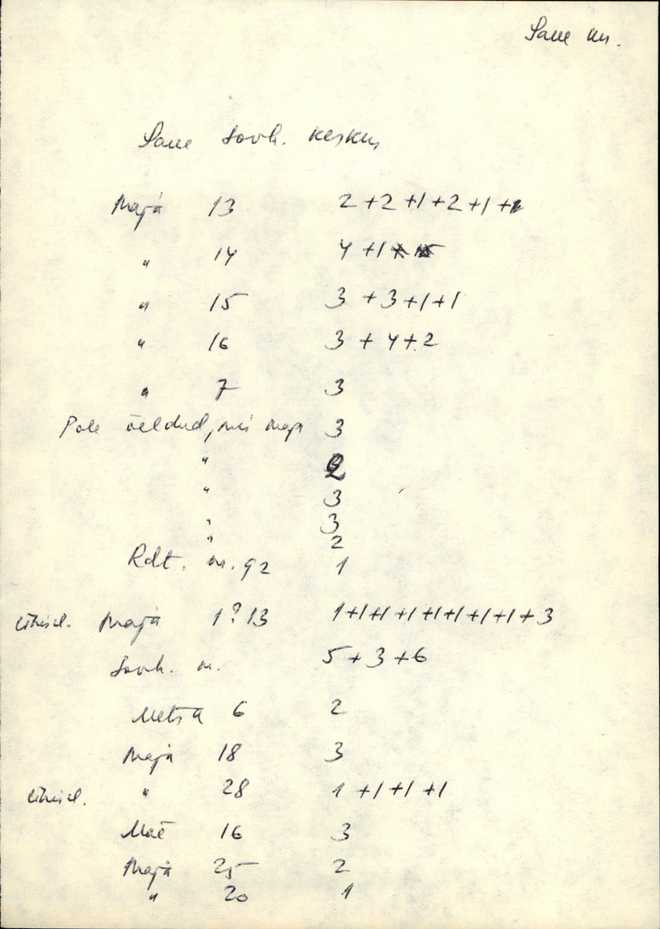 Saue kn.
Saue Sovh. keskus
Maja 13 2+2+1+2+1+1
" 14 4+1
" 15 3+3+1+1
" 16 3+4+2
" 7 3
Pole öeldud, mis maja 3
" 2
" 3
" 3
" 2
Rdt. m. 92 1
ühisel. Maja 1? 13 1+1+1+1+1+1+1+1+3
Sovh. m. 5+3+6
Metsa 6 2
Maja 18 3
ühisel. " 28 1+1+1+1
Mäe 16 3
Maja 25 2
" 20 1